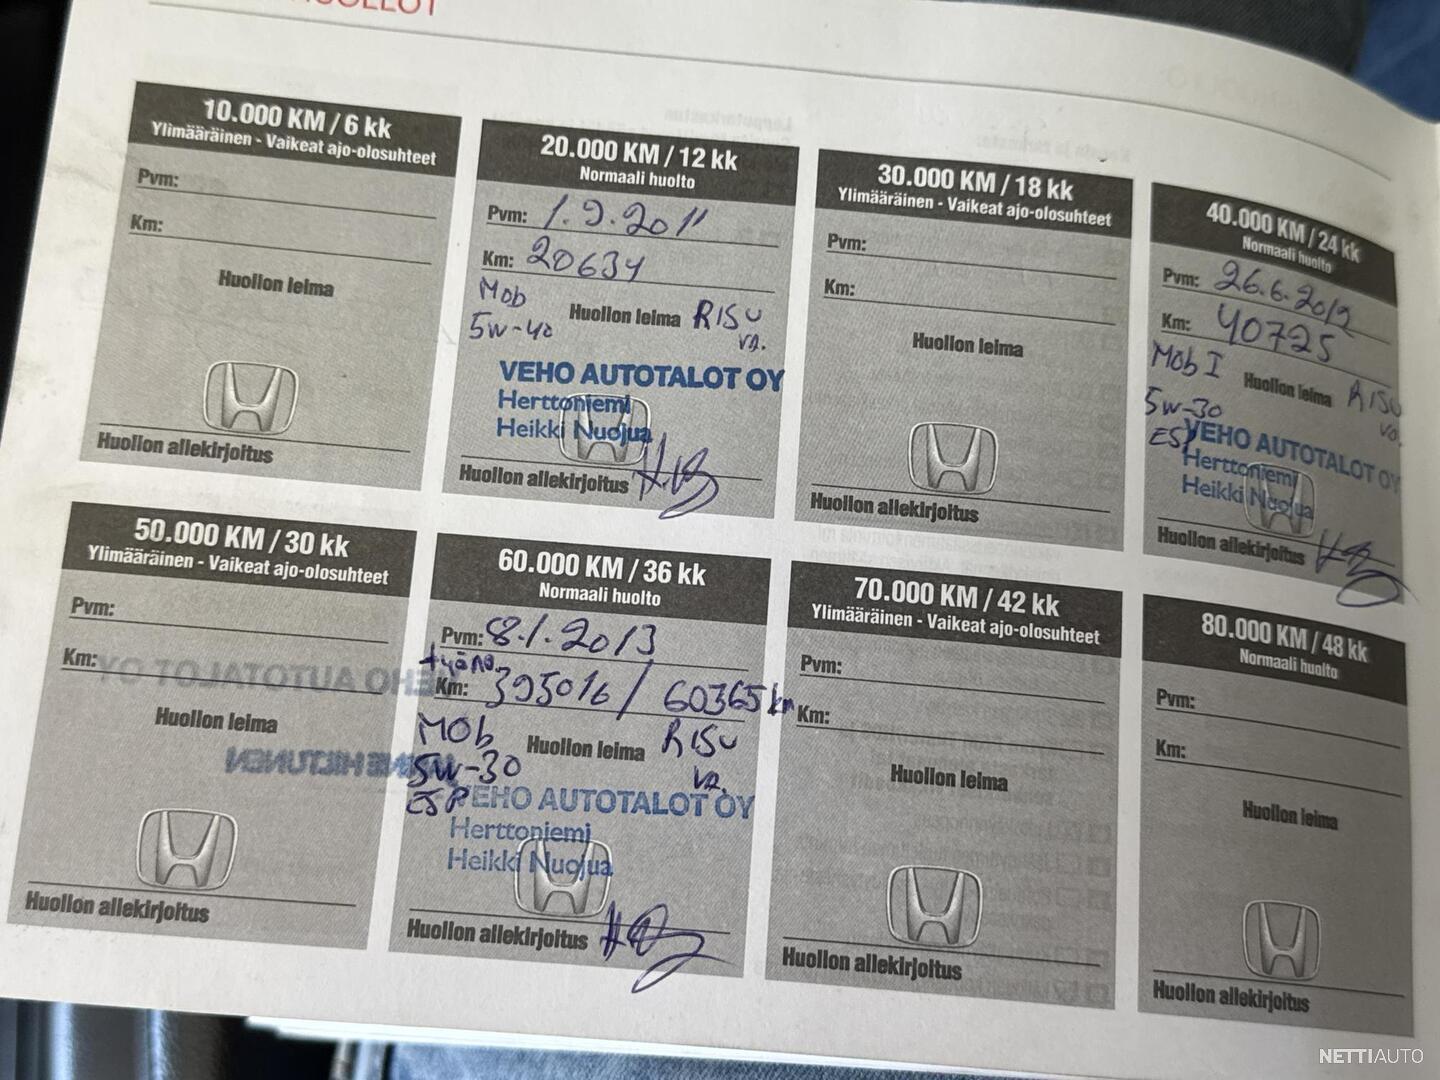 10.000 KM / 6 kk
Ylimääräinen - Vaikeat ajo-olosuhteet
Pvm:
Km:
Huollon leima
Huollon allekirjoitus
20.000 KM / 12 kk
Normaali huolto
Pvm: 1.9.2011
Km: 20634
Mob
5w-40
Huollon leima RISU
va.
VEHO AUTOTALOT OY
Herttoniemi
Heikki Nuojua
Huollon allekirjoitus
30.000 KM / 18 kk
Ylimääräinen - Vaikeat ajo-olosuhteet
Pvm:
Km:
Huollon leima
Huollon allekirjoitus
40.000 KM / 24 kk
Normaali huolto
Pvm: 26.6.2012
Km: 40725
Mob I
Huollon leima RISU
va.
5w-30
ESP
VEHO AUTOTALOT OY
Herttoniemi
Heikki Nuojua
Huollon allekirjoitus
50.000 KM / 30 kk
Ylimääräinen - Vaikeat ajo-olosuhteet
Pvm:
Km:
Huollon leima
Huollon allekirjoitus
60.000 KM / 36 kk
Normaali huolto
Pvm: 8.1.2013
työno.
Km: 395016 / 60365 km
Mob
Huollon leima RISU
va.
5w-30
ESP
VEHO AUTOTALOT OY
Herttoniemi
Heikki Nuojua
Huollon allekirjoitus
70.000 KM / 42 kk
Ylimääräinen - Vaikeat ajo-olosuhteet
Pvm:
Km:
Huollon leima
Huollon allekirjoitus
80.000 KM / 48 kk
Normaali huolto
Pvm:
Km:
Huollon leima
Huollon allekirjoitus
NETTIAUTO